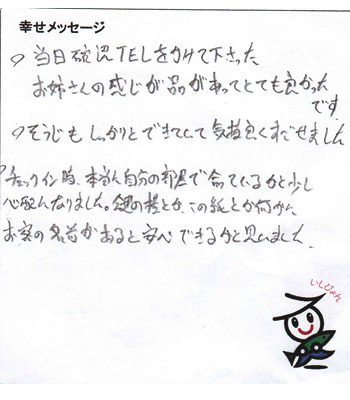 幸せメッセージ
♪ 当日確認TELをかけて下さった
お姉さんの感じが品があってとても良かった
です
♪ そうじもしっかりとできていて気持良くすごせました
♪ チェックイン時、本当に自分の部屋で合ているかと少し
心配になりました。鍵の横とか、この紙とか何かに
お客の名前があると安心できるかと思いました。
いしぴょん